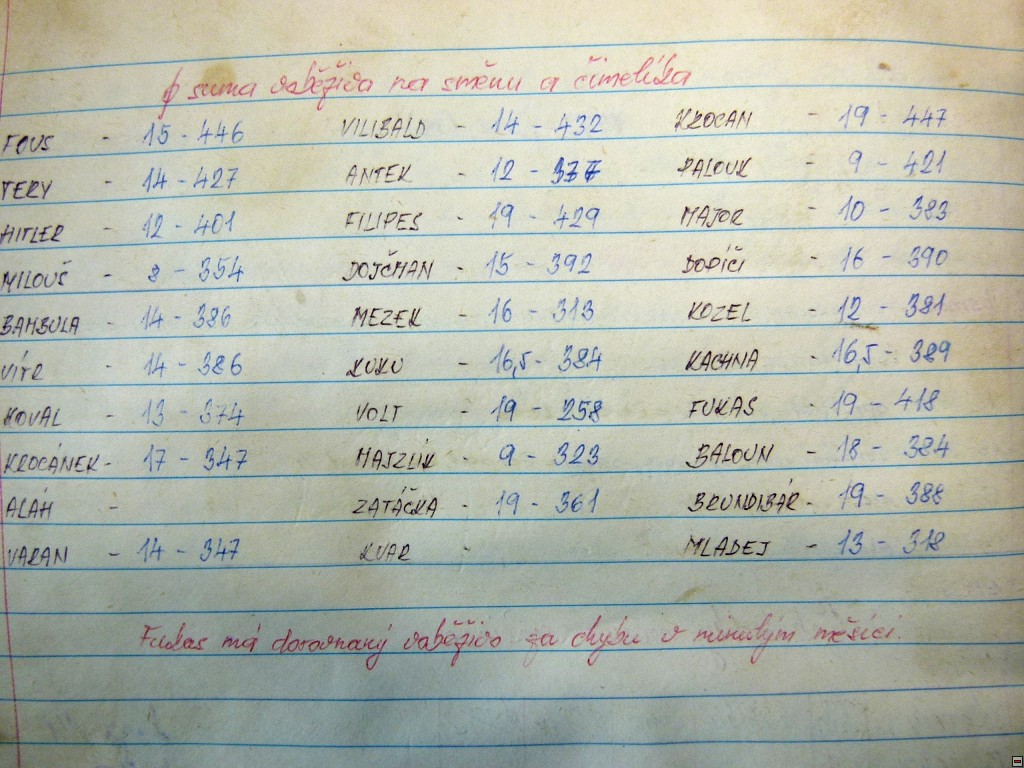 ϕ suma naběživa na směnu a čimelíka
FOUS - 15 - 446 VILIBALD - 14 - 432 KROCAN - 19 - 447
TERY - 14 - 427 ANTEK - 12 - 377 PALOUK - 9 - 421
HITLER - 12 - 401 FILIPES - 19 - 429 MAJOR - 10 - 383
MILOUŠ - 8 - 354 DOJČMAN - 15 - 392 DODÍČI - 16 - 390
BAMBULA - 14 - 386 MEZEK - 16 - 313 KOZEL - 12 - 381
VÍTR - 14 - 386 KUKU - 16,5 - 384 KACHNA - 16,5 - 389
KOVAL - 13 - 374 VOLT - 19 - 258 FUKAS - 19 - 418
KROCÁNEK - 17 - 347 MAJZLÍK - 9 - 323 BALOUN - 18 - 384
ALÁH - ZATÁČKA - 19 - 361 BRUNDIBÁR - 19 - 388
VARAN - 14 - 347 KVAR - MLADEJ - 13 - 318
Fukas má dorovnaný naběživo za chybu v minulým měsíci.